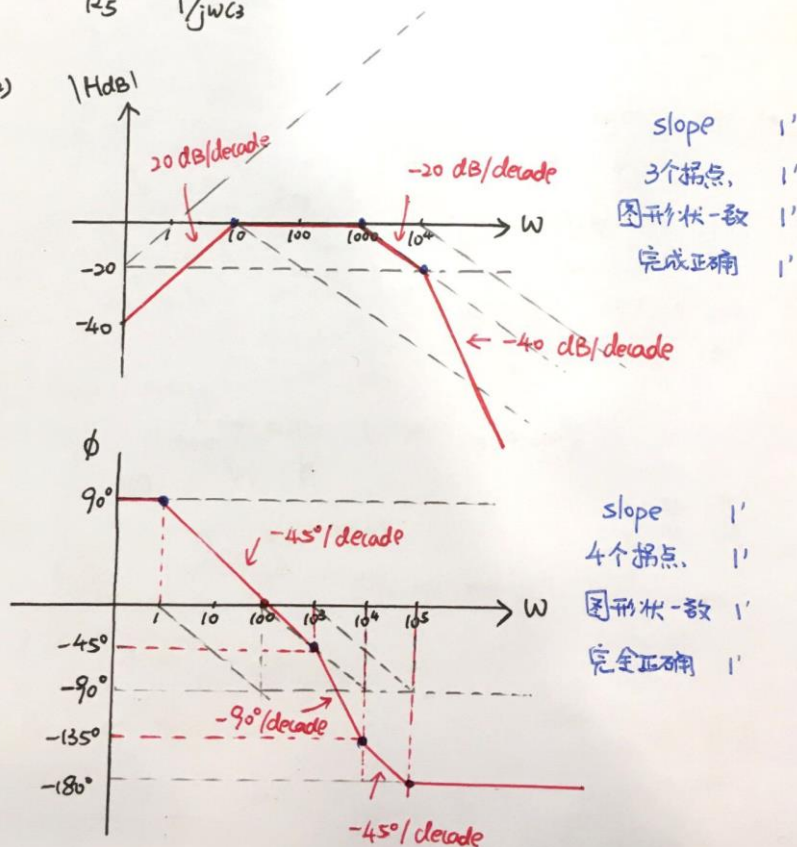 R5 1/jwC3
|HdB|
20 dB/decade
-20 dB/decade
1 10 100 1000 10⁴ W
-20
-40
-40 dB/decade
slope 1'
3个拐点、 1'
图形状一致 1'
完成正确 1'
ϕ
90°
-45°/decade
1 10 100 10³ 10⁴ 10⁵ W
-45°
-90°
-90°/decade
-135°
-180°
-45°/decade
slope 1'
4个拐点、 1'
图形状一致 1'
完全正确 1'